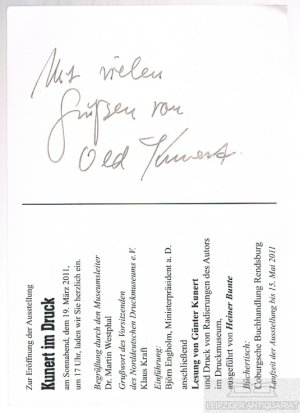 Mit vielen
Grüßen von
Old Kunert.
Zur Eröffnung der Ausstellung
Kunert im Druck
am Sonnabend, dem 19. März 2011,
um 17 Uhr, laden wir Sie herzlich ein.
Begrüßung durch den Museumsleiter
Dr. Martin Westphal
Grußwort des Vorsitzenden
des Norddeutschen Druckmuseums e.V.
Klaus Kraft
Einführung:
Björn Engholm, Ministerpräsident a. D.
anschließend
Lesung von Günter Kunert
und Druck von Radierungen des Autors
im Druckmuseum,
ausgeführt von Heiner Bunte
Büchertisch:
Coburgsche Buchhandlung Rendsburg
Laufzeit der Ausstellung bis 15. Mai 2011
LEIPZIGER ANTIQUARIAT